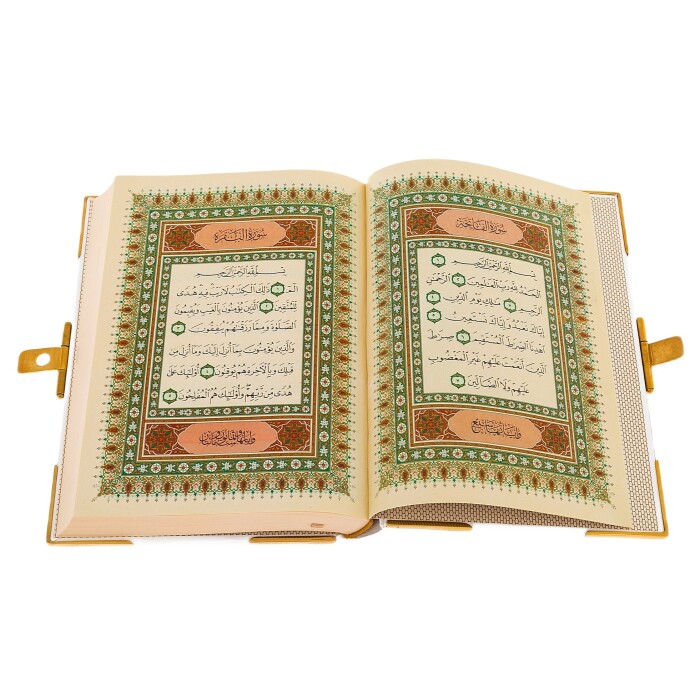 سُورَةُ الفَاتِحَةِ
بِسْمِ ٱللَّهِ ٱلرَّحْمَٰنِ ٱلرَّحِيمِ ١
ٱلْحَمْدُ لِلَّهِ رَبِّ ٱلْعَٰلَمِينَ ٢ ٱلرَّحْمَٰنِ
ٱلرَّحِيمِ ٣ مَٰلِكِ يَوْمِ ٱلدِّينِ ٤
إِيَّاكَ نَعْبُدُ وَإِيَّاكَ نَسْتَعِينُ ٥
ٱهْدِنَا ٱلصِّرَٰطَ ٱلْمُسْتَقِيمَ ٦ صِرَٰطَ
ٱلَّذِينَ أَنْعَمْتَ عَلَيْهِمْ غَيْرِ ٱلْمَغْضُوبِ
عَلَيْهِمْ وَلَا ٱلضَّآلِّينَ ٧
سُورَةُ البَقَرَةِ
بِسْمِ ٱللَّهِ ٱلرَّحْمَٰنِ ٱلرَّحِيمِ
الٓمٓ ١ ذَٰلِكَ ٱلْكِتَٰبُ لَا رَيْبَ فِيهِ هُدًى
لِّلْمُتَّقِينَ ٢ ٱلَّذِينَ يُؤْمِنُونَ بِٱلْغَيْبِ وَيُقِيمُونَ
ٱلصَّلَوٰةَ وَمِمَّا رَزَقْنَٰهُمْ يُنفِقُونَ ٣
وَٱلَّذِينَ يُؤْمِنُونَ بِمَآ أُنزِلَ إِلَيْكَ وَمَآ أُنزِلَ مِن
قَبْلِكَ وَبِٱلْءَاخِرَةِ هُمْ يُوقِنُونَ ٤ أُو۟لَٰٓئِكَ عَلَىٰ
هُدًى مِّن رَّبِّهِمْ وَأُو۟لَٰٓئِكَ هُمُ ٱلْمُفْلِحُونَ ٥